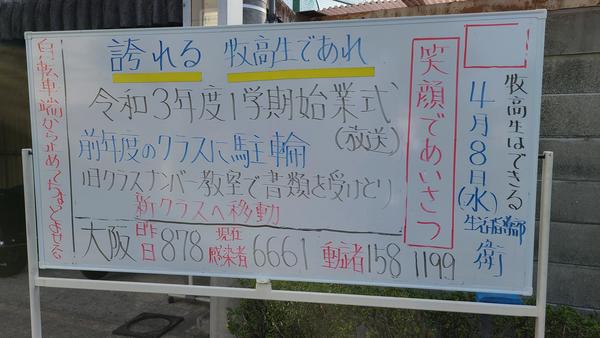 牧高生はできる
4月8日(水)
生活指導部
衛
笑顔であいさつ
誇れる 牧高生であれ
令和3年度1学期始業式
(放送)
前年度のクラスに駐輪
旧クラスナンバー教室で書類を受けとり
新クラスへ移動
大阪 昨日 878 現在感染者 6661 重症者 158 1199
自転車端から止めて